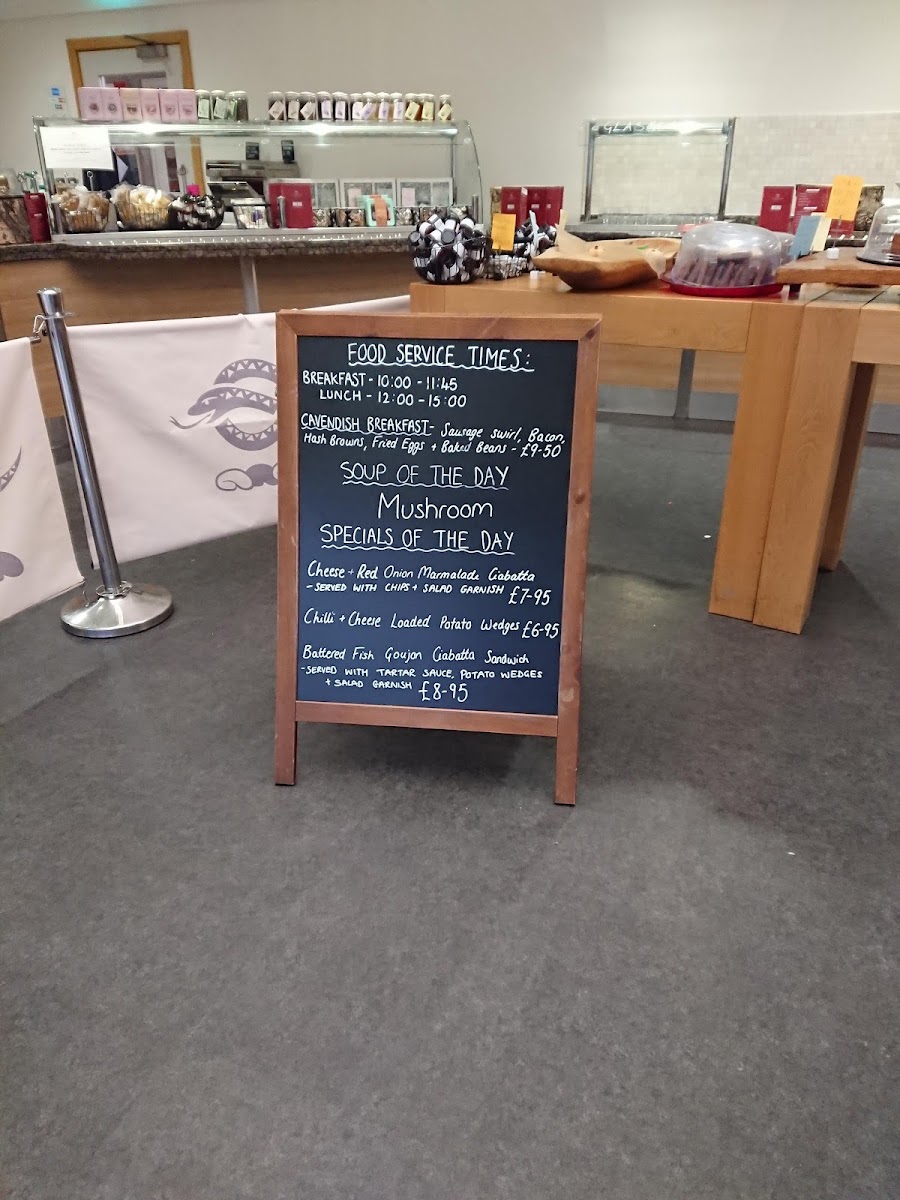 FOOD SERVICE TIMES:
BREAKFAST - 10:00 - 11:45
LUNCH - 12:00 - 15:00
CAVENDISH BREAKFAST - Sausage swirl, Bacon,
Hash Browns, Fried Eggs + Baked Beans - £9-50
SOUP OF THE DAY
Mushroom
SPECIALS OF THE DAY
Cheese + Red Onion Marmalade Ciabatta
- SERVED WITH CHIPS + SALAD GARNISH £7-95
Chilli + Cheese Loaded Potato Wedges £6-95
Battered Fish Goujon Ciabatta Sandwich
- SERVED WITH TARTAR SAUCE, POTATO WEDGES
+ SALAD GARNISH £8-95